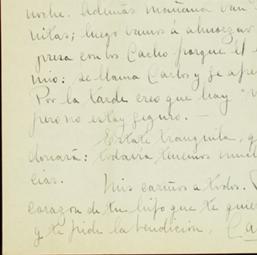 noche. Además mañana van
nitas; luego vamos a almorzar
presa con los Cacho porque el
mio: se llama Carlos y se ape
Por la tarde creo que hay "
pero no estoy seguro. —
Estate tranquila, q
donará: todavia tenemos much
cias.
Mis cariños a todos.
corazon de tu hijo que te quie
y te pide la bendición.